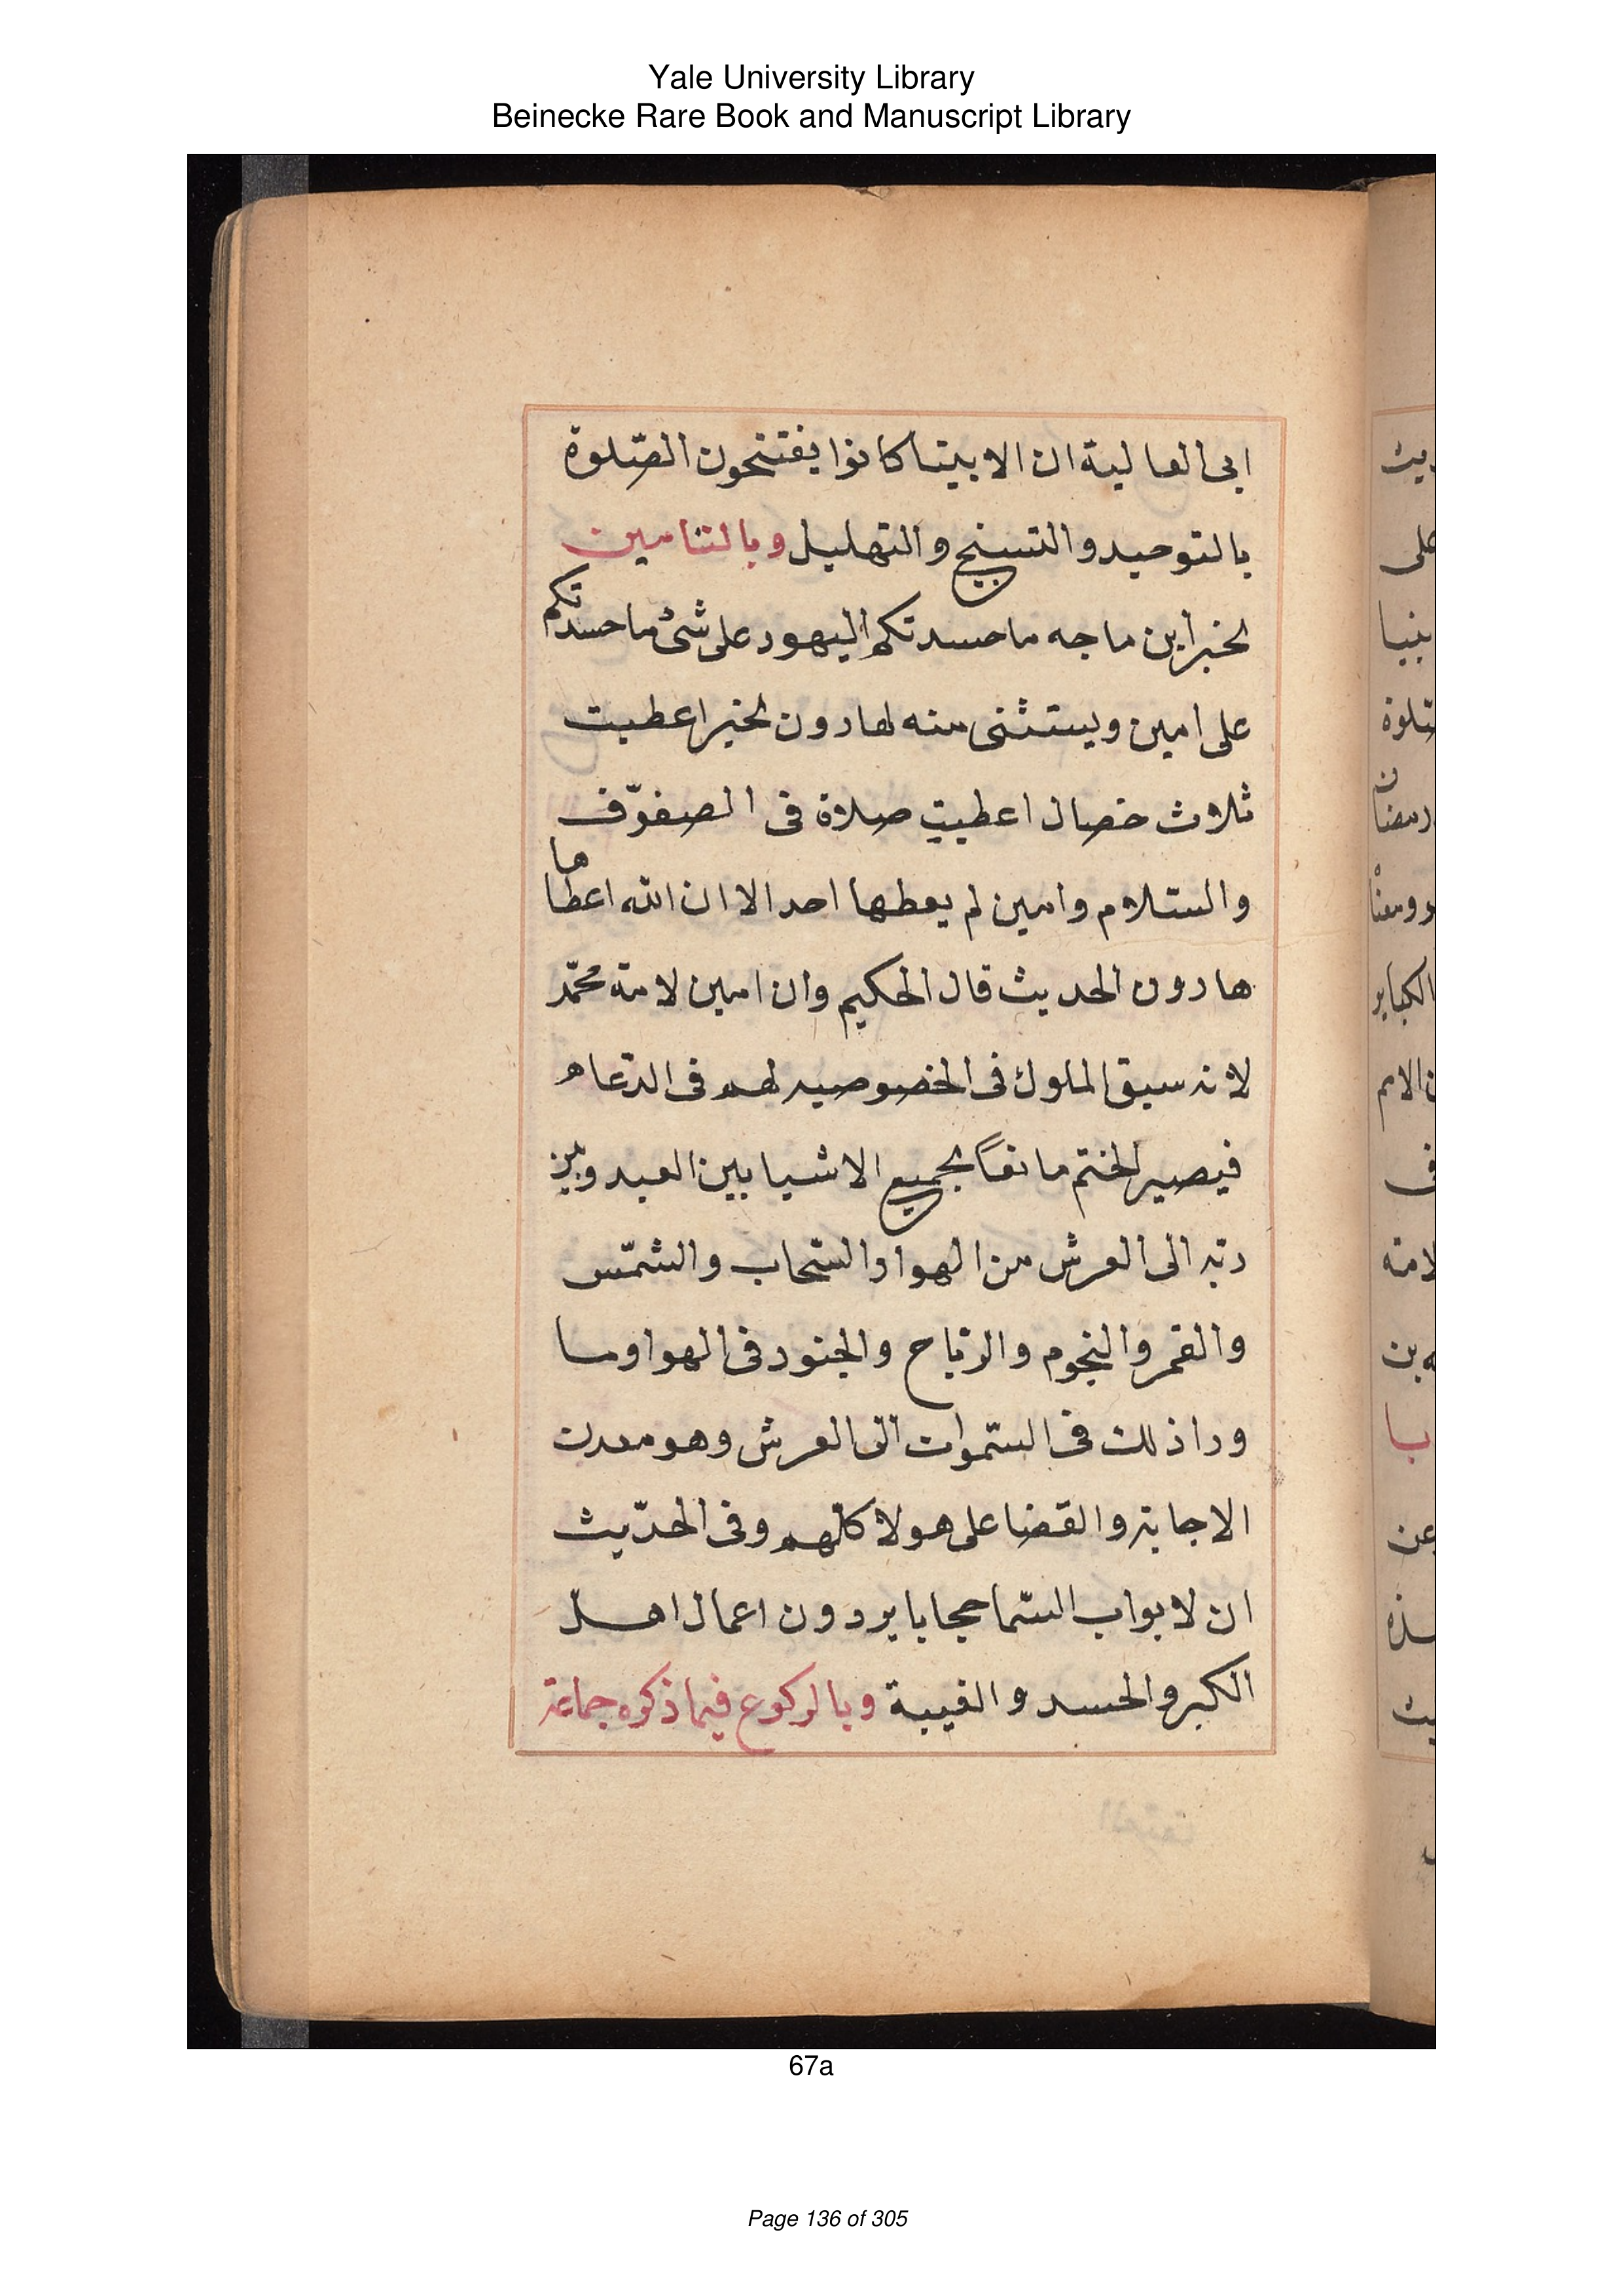 Yale University Library
Beinecke Rare Book and Manuscript Library
ابى العالية ان الانبيا كانوا يفتتحون الصّلوة
بالتوحيد والتسبيح والتهليل وبالتامين
لخبر ابن ماجه ما حسدتكم اليهود على شئ ما حسدتكم
على امين ويستثنى منه هارون لخبر اعطيت
ثلاث خصال اعطيت صلاة فى الصفوّف
والسّلام وامين لم يعطها احد الا ان الله اعطاها
هارون الحديث قال الحكيم وان امين لامة محمّد
لانه سيق الملوك فى الخصوصيه لهم فى الدّعاء
فيصير الختم مانعًا لجميع الاشيا بين العبد وبين
ربّه الى العرش من الهوا والسّحاب والشمّس
والقمر والنجوم والرّياح والجنود فى الهوا وما
ورا ذلك فى السّموات الى العرش وهو معدن
الاجابة والقضا على هولا كلهم وفى الحدّيث
ان لابواب السّما حجابا يردون اعمال اهل
الكبر والحسد والغيبة وبالركوع فيما ذكره جماعة
67a
Page 136 of 305